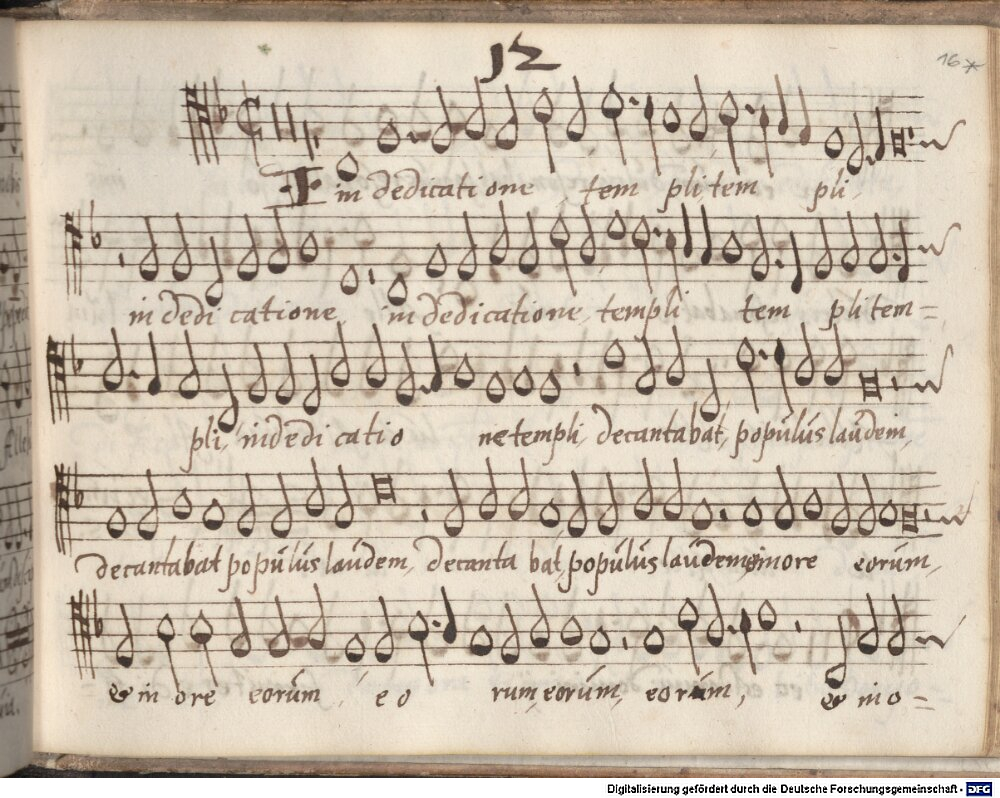 12
16*
In dedicatione templi, templi,
in dedicatione, in dedicatione, templi templi tem=
pli, in dedicatione templi, decantabat, populus laudem,
decantabat populus laudem, decantabat, populus laudem, in ore eorum,
& in ore eorum, eorum, eorum, eorum, & in o=
Digitalisierung gefördert durch die Deutsche Forschungsgemeinschaft - DFG